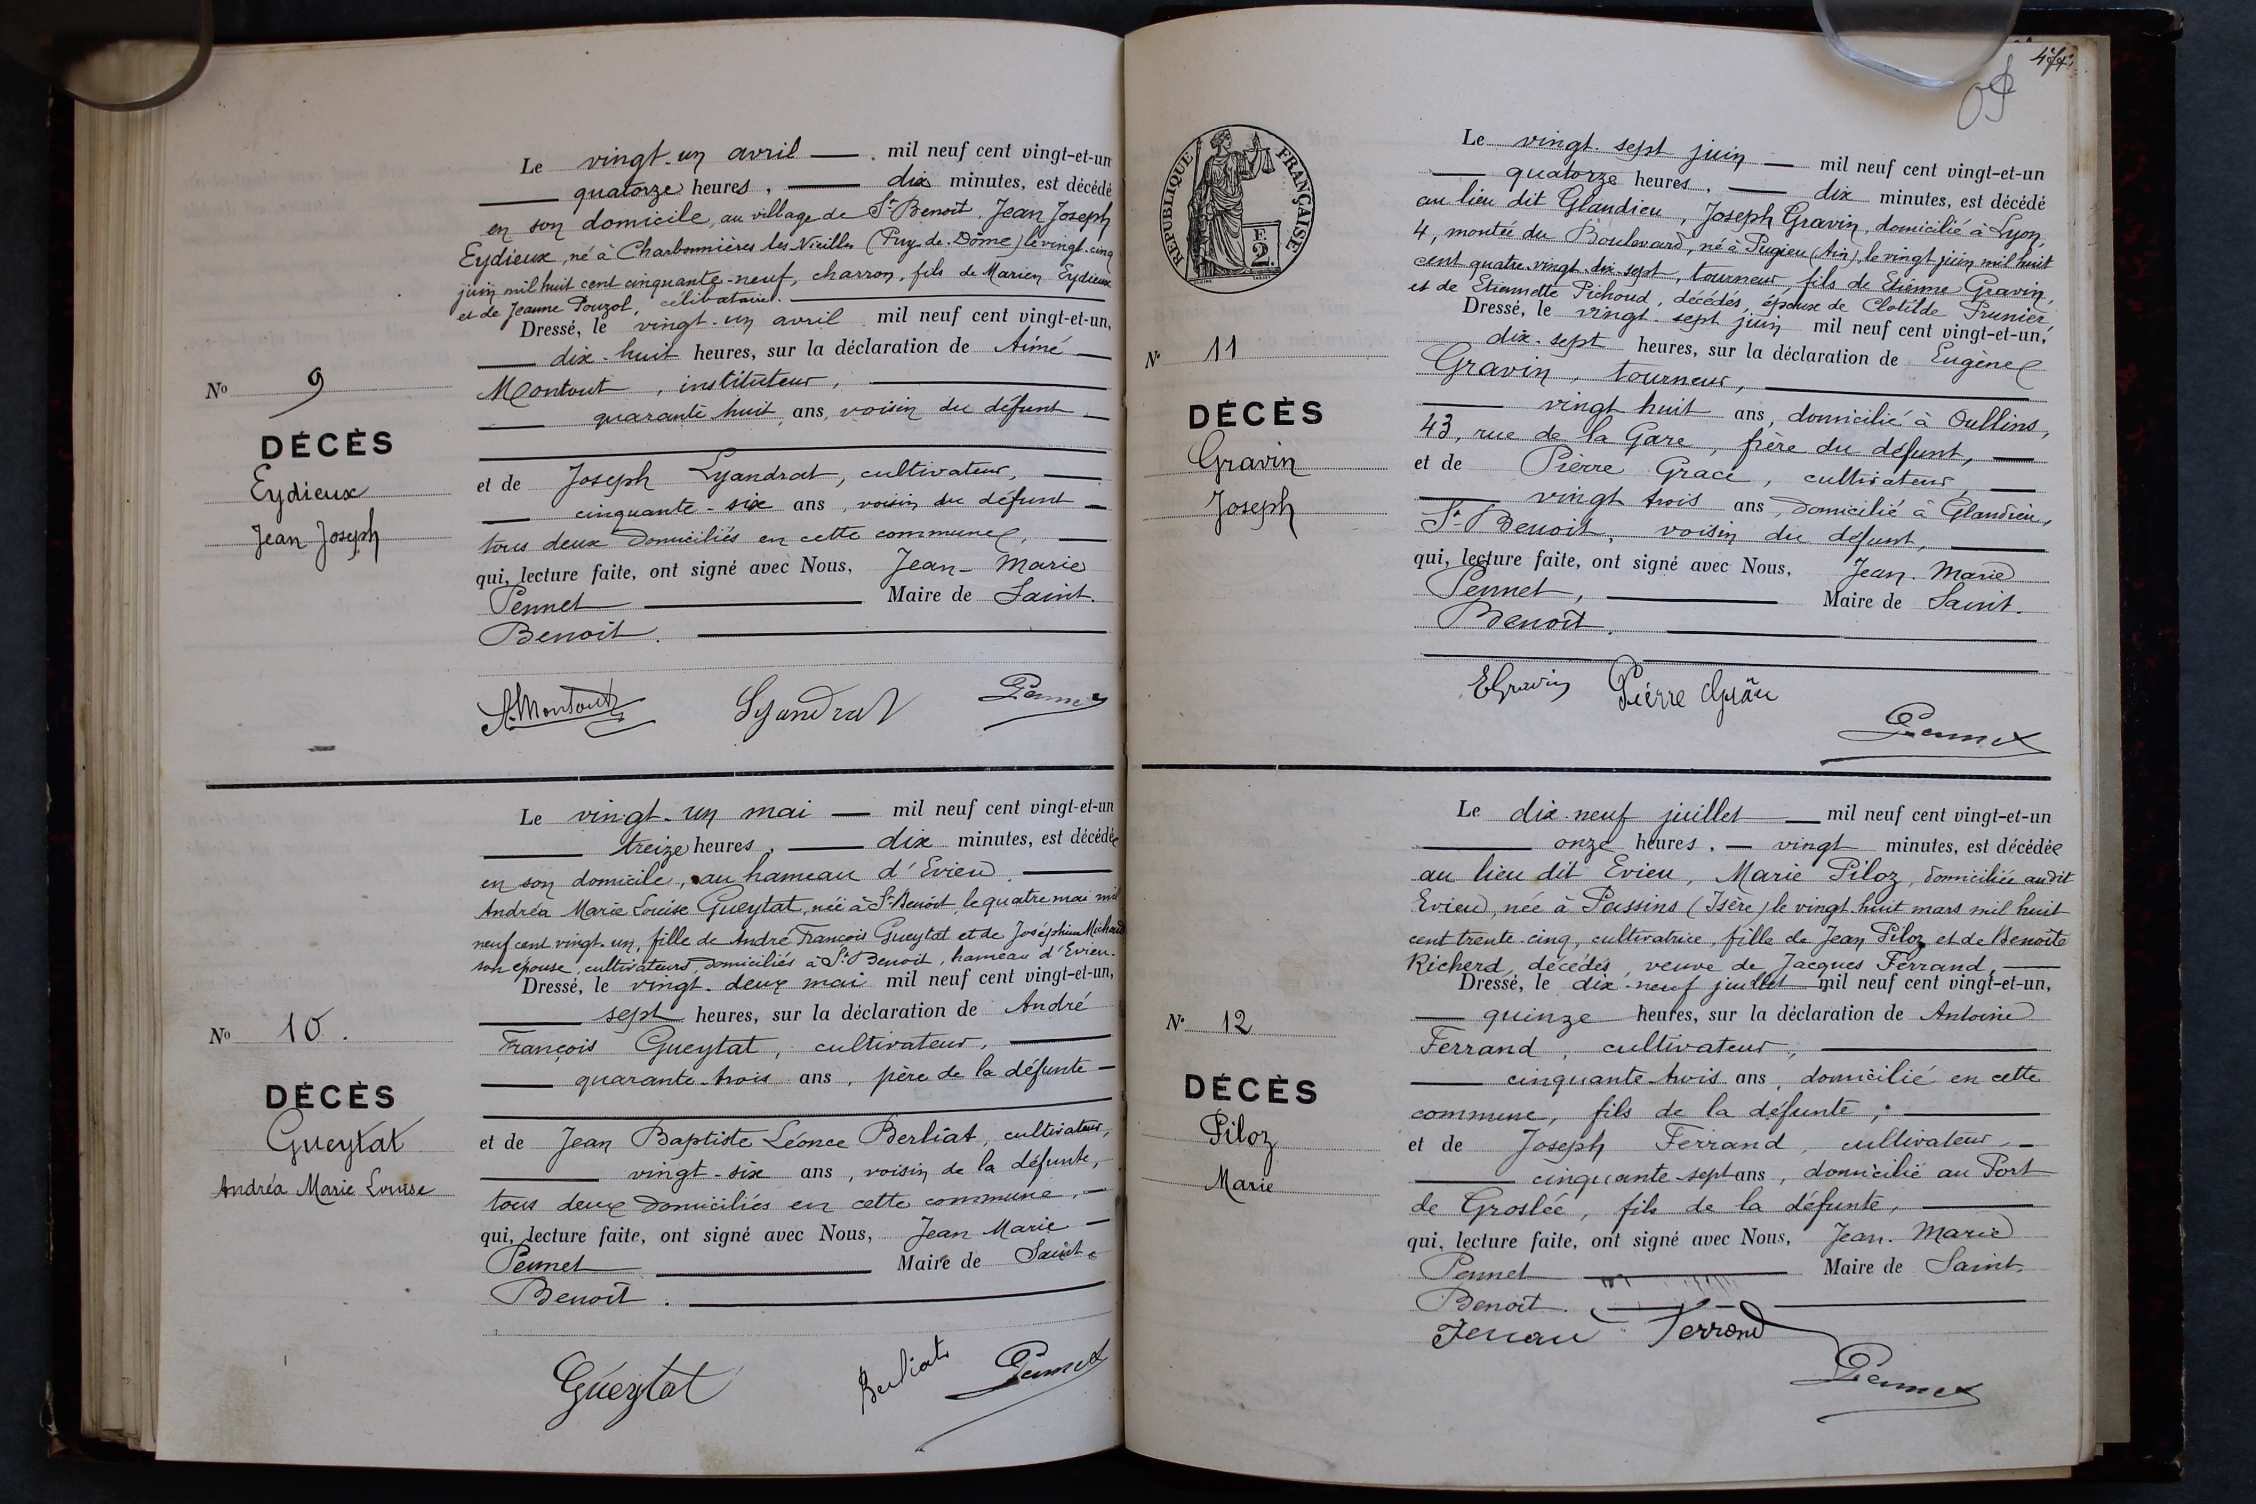 Le vingt-un avril — mil neuf cent vingt-et-un
quatorze heures, — dix minutes, est décédé
en son domicile, au village de St Benoit, Jean Joseph
Eydieux, né à Charbonnières les Vieilles (Puy-de-Dôme) le vingt-cinq
juin mil huit cent cinquante-neuf, charron, fils de Marien Eydieux
et de Jeanne Pouzol, célibataire.
Dressé, le vingt-un avril mil neuf cent vingt-et-un,
dix-huit heures, sur la déclaration de Aimé
Montout, instituteur,
quarante huit ans, voisin du défunt
et de Joseph Lyandrat, cultivateur,
cinquante-six ans, voisin du défunt
tous deux domiciliés en cette commune,
qui, lecture faite, ont signé avec Nous, Jean-Marie
Pennet Maire de Saint-
Benoit.
No 9
DÉCÈS
Eydieux
Jean Joseph
A. Montout Lyandrat Pennet
Le vingt-un mai — mil neuf cent vingt-et-un
treize heures, — dix minutes, est décédée
en son domicile, au hameau d'Evieu
Andréa Marie Louise Gueytat, née à St-Benoit, le quatre mai mil
neuf cent vingt-un, fille de André François Gueytat et de Joséphine Michaud
son épouse, cultivateurs, domiciliés à St Benoit, hameau d'Evieu.
Dressé, le vingt-deux mai mil neuf cent vingt-et-un,
sept heures, sur la déclaration de André
François Gueytat, cultivateur,
quarante-trois ans, père de la défunte
et de Jean Baptiste Léonce Berliat, cultivateur,
vingt-six ans, voisin de la défunte,
tous deux domiciliés en cette commune,
qui, lecture faite, ont signé avec Nous, Jean Marie
Pennet Maire de Saint-
Benoit.
No 10.
DÉCÈS
Gueytat
Andréa Marie Louise
Gueytat Berliat Pennet
RÉPUBLIQUE FRANÇAISE
F.
2.
Le vingt-sept juin — mil neuf cent vingt-et-un
quatorze heures, — dix minutes, est décédé
au lieu dit Glandieu, Joseph Gravin, domicilié à Lyon,
4, montée du Boulevard, né à Pugieu (Ain), le vingt juin mil huit
cent quatre-vingt-dix-sept, tourneur, fils de Etienne Gravin,
et de Etiennette Pichoud, décédés, époux de Clotilde Prunier,
Dressé, le vingt-sept juin mil neuf cent vingt-et-un,
dix-sept heures, sur la déclaration de Eugène
Gravin, tourneur,
vingt huit ans, domicilié à Oullins,
43, rue de la Gare, frère du défunt,
et de Pierre Grace, cultivateur,
vingt trois ans, domicilié à Glandieu,
St-Benoit, voisin du défunt,
qui, lecture faite, ont signé avec Nous, Jean-Marie
Pennet, Maire de Saint-
Benoit.
No 11
DÉCÈS
Gravin
Joseph
EGravin Pierre Pennet
Le dix-neuf juillet — mil neuf cent vingt-et-un
onze heures, — vingt minutes, est décédée
au lieu dit Evieu, Marie Piloz, domiciliée audit
Evieu, née à Passins (Isère) le vingt huit mars mil huit
cent trente-cinq, cultivatrice, fille de Jean Piloz et de Benoîte
Richerd, décédés, veuve de Jacques Ferrand,
Dressé, le dix-neuf juillet mil neuf cent vingt-et-un,
quinze heures, sur la déclaration de Antoine
Ferrand, cultivateur,
cinquante-trois ans, domicilié en cette
commune, fils de la défunte,
et de Joseph Ferrand, cultivateur,
cinquante-sept ans, domicilié au Port
de Groslée, fils de la défunte,
qui, lecture faite, ont signé avec Nous, Jean-Marie
Pennet Maire de Saint-
Benoit.
No 12
DÉCÈS
Piloz
Marie
Ferrand Pennet